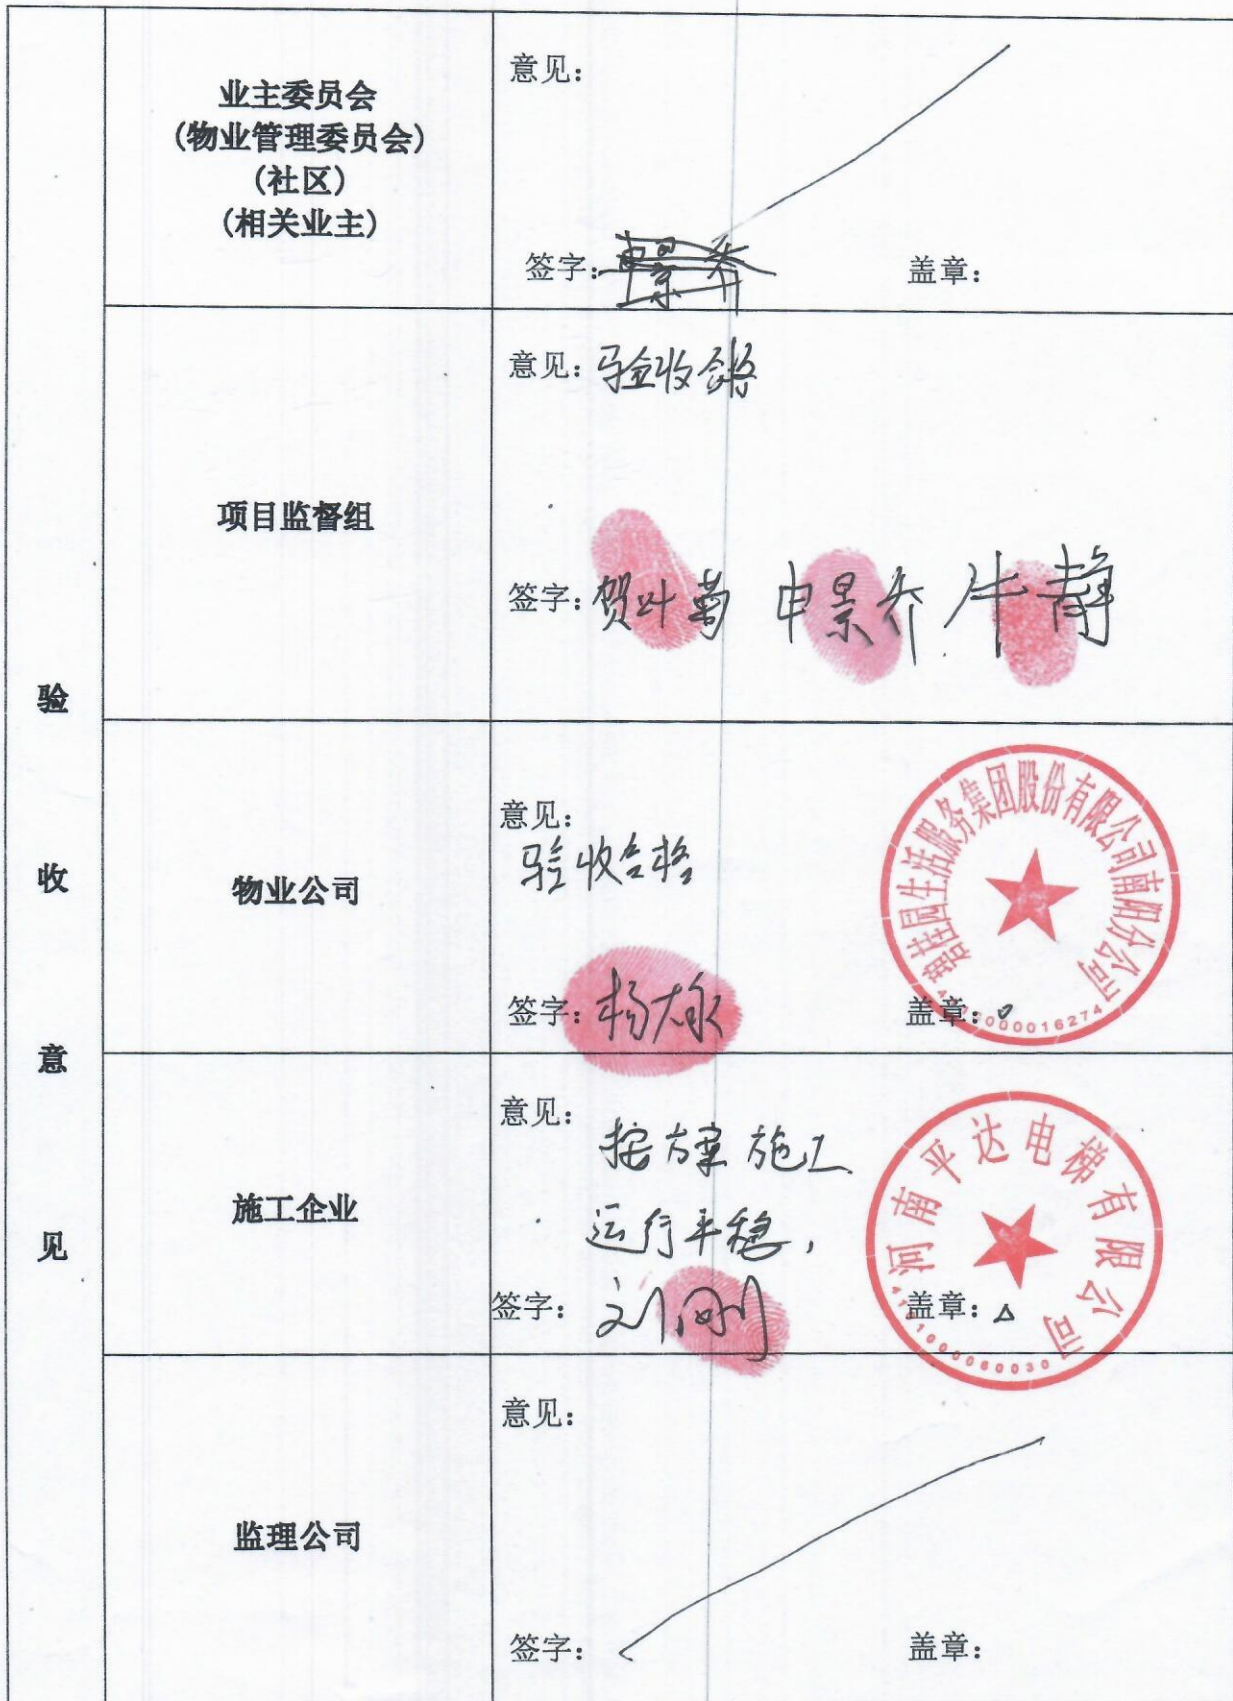 验收意见
业主委员会
(物业管理委员会)
(社区)
(相关业主)
意见：
签字：申景乔
盖章：
项目监督组
意见：验收合格
签字：贺叶菊 申景乔 牛静
物业公司
意见：
验收合格
签字：杨大永
盖章：
碧桂园生活服务集团股份有限公司南阳分公司
施工企业
意见：
按方案施工
运行平稳，
签字：刘刚
盖章：
河南平达电梯有限公司
4101000060030
监理公司
意见：
签字：
盖章：